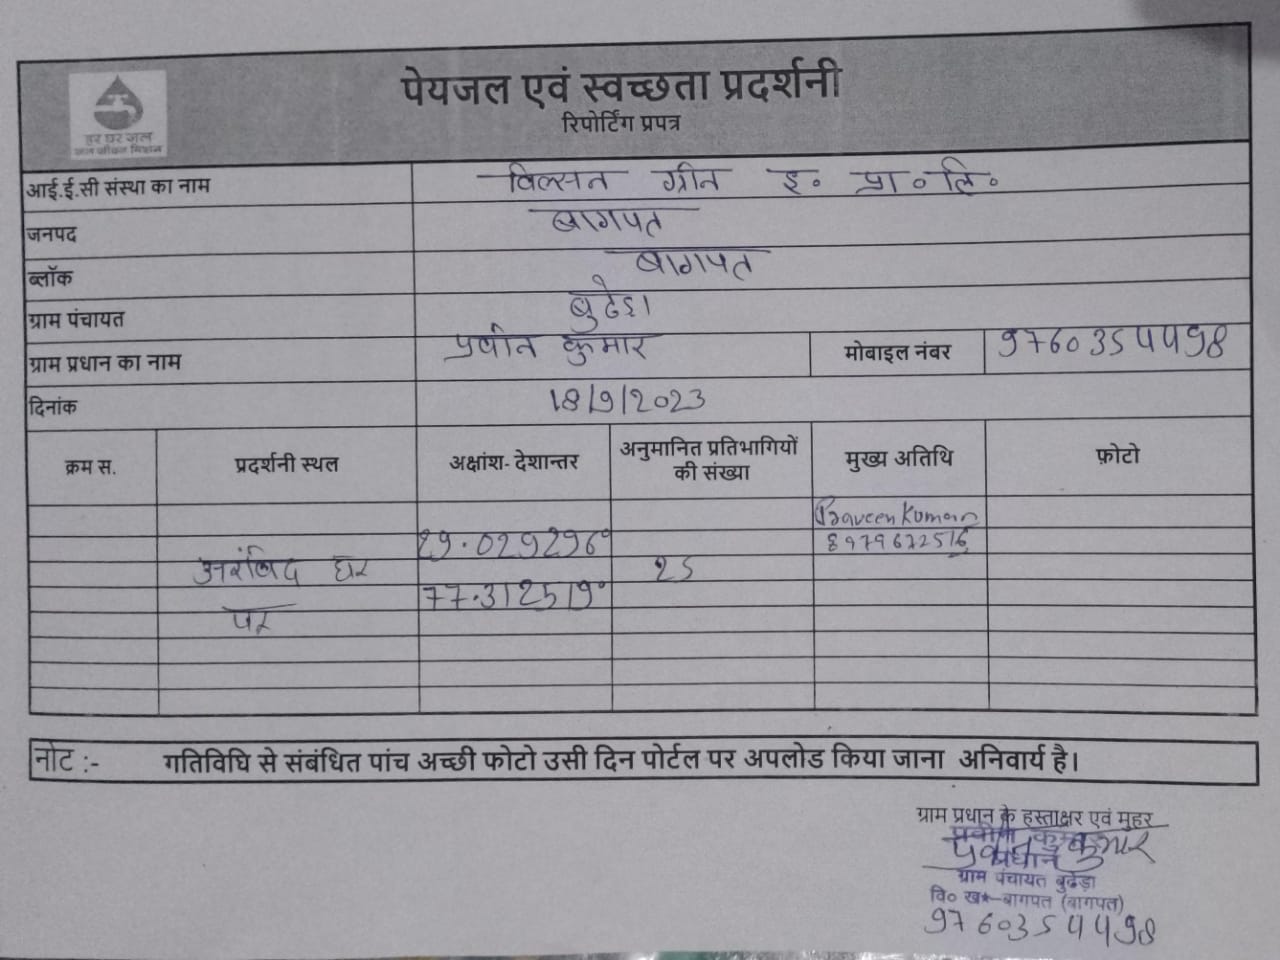 हर घर जल
जल जीवन मिशन
पेयजल एवं स्वच्छता प्रदर्शनी
रिपोर्टिंग प्रपत्र
आई.ई.सी संस्था का नाम विल्सन ग्रीन इ० प्रा०लि०
जनपद बागपत
ब्लॉक बागपत
ग्राम पंचायत बुढेडा
ग्राम प्रधान का नाम प्रवीन कुमार मोबाइल नंबर 9760354498
दिनांक 18/9/2023
क्रम स. प्रदर्शनी स्थल अक्षांश- देशान्तर अनुमानित प्रतिभागियों की संख्या मुख्य अतिथि फ़ोटो
Praveen Kumar
29.029296° 8979672516
अरविंद घर 25
77.312519°
पर
नोट :- गतिविधि से संबंधित पांच अच्छी फोटो उसी दिन पोर्टल पर अपलोड किया जाना अनिवार्य है।
ग्राम प्रधान के हस्ताक्षर एवं मुहर
प्रवीण कुमार
प्रवीन कुमार
प्रधान
ग्राम पंचायत बुढेड़ा
वि० ख०-बागपत (बागपत)
9760354498